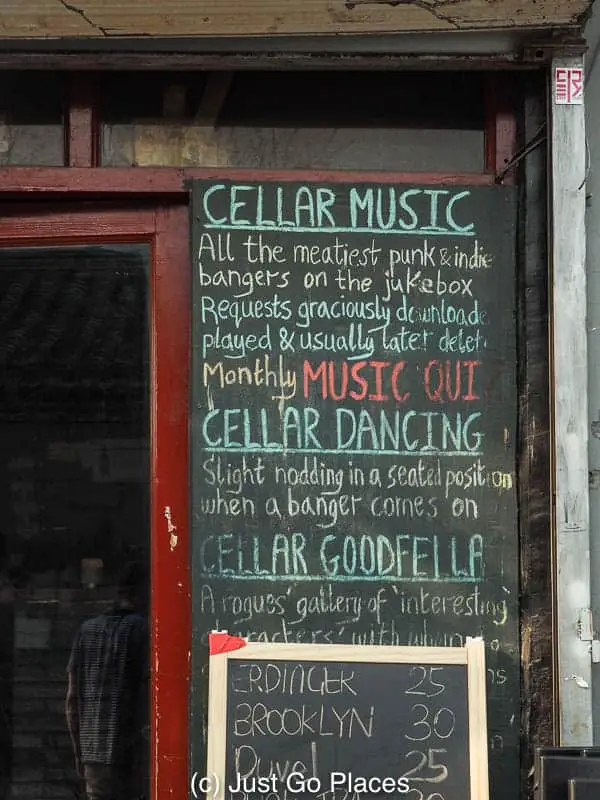 CELLAR MUSIC
All the meatiest punk & indie
bangers on the jukebox
Requests graciously downloade
played & usually later delet
Monthly MUSIC QUI
CELLAR DANCING
Slight nodding in a seated position
when a banger comes on
CELLAR GOODFELLA
A rogues' gallery of 'interesting
with
ERDINGER 25
BROOKLYN 30
Duvel 25
(c) Just Go Places